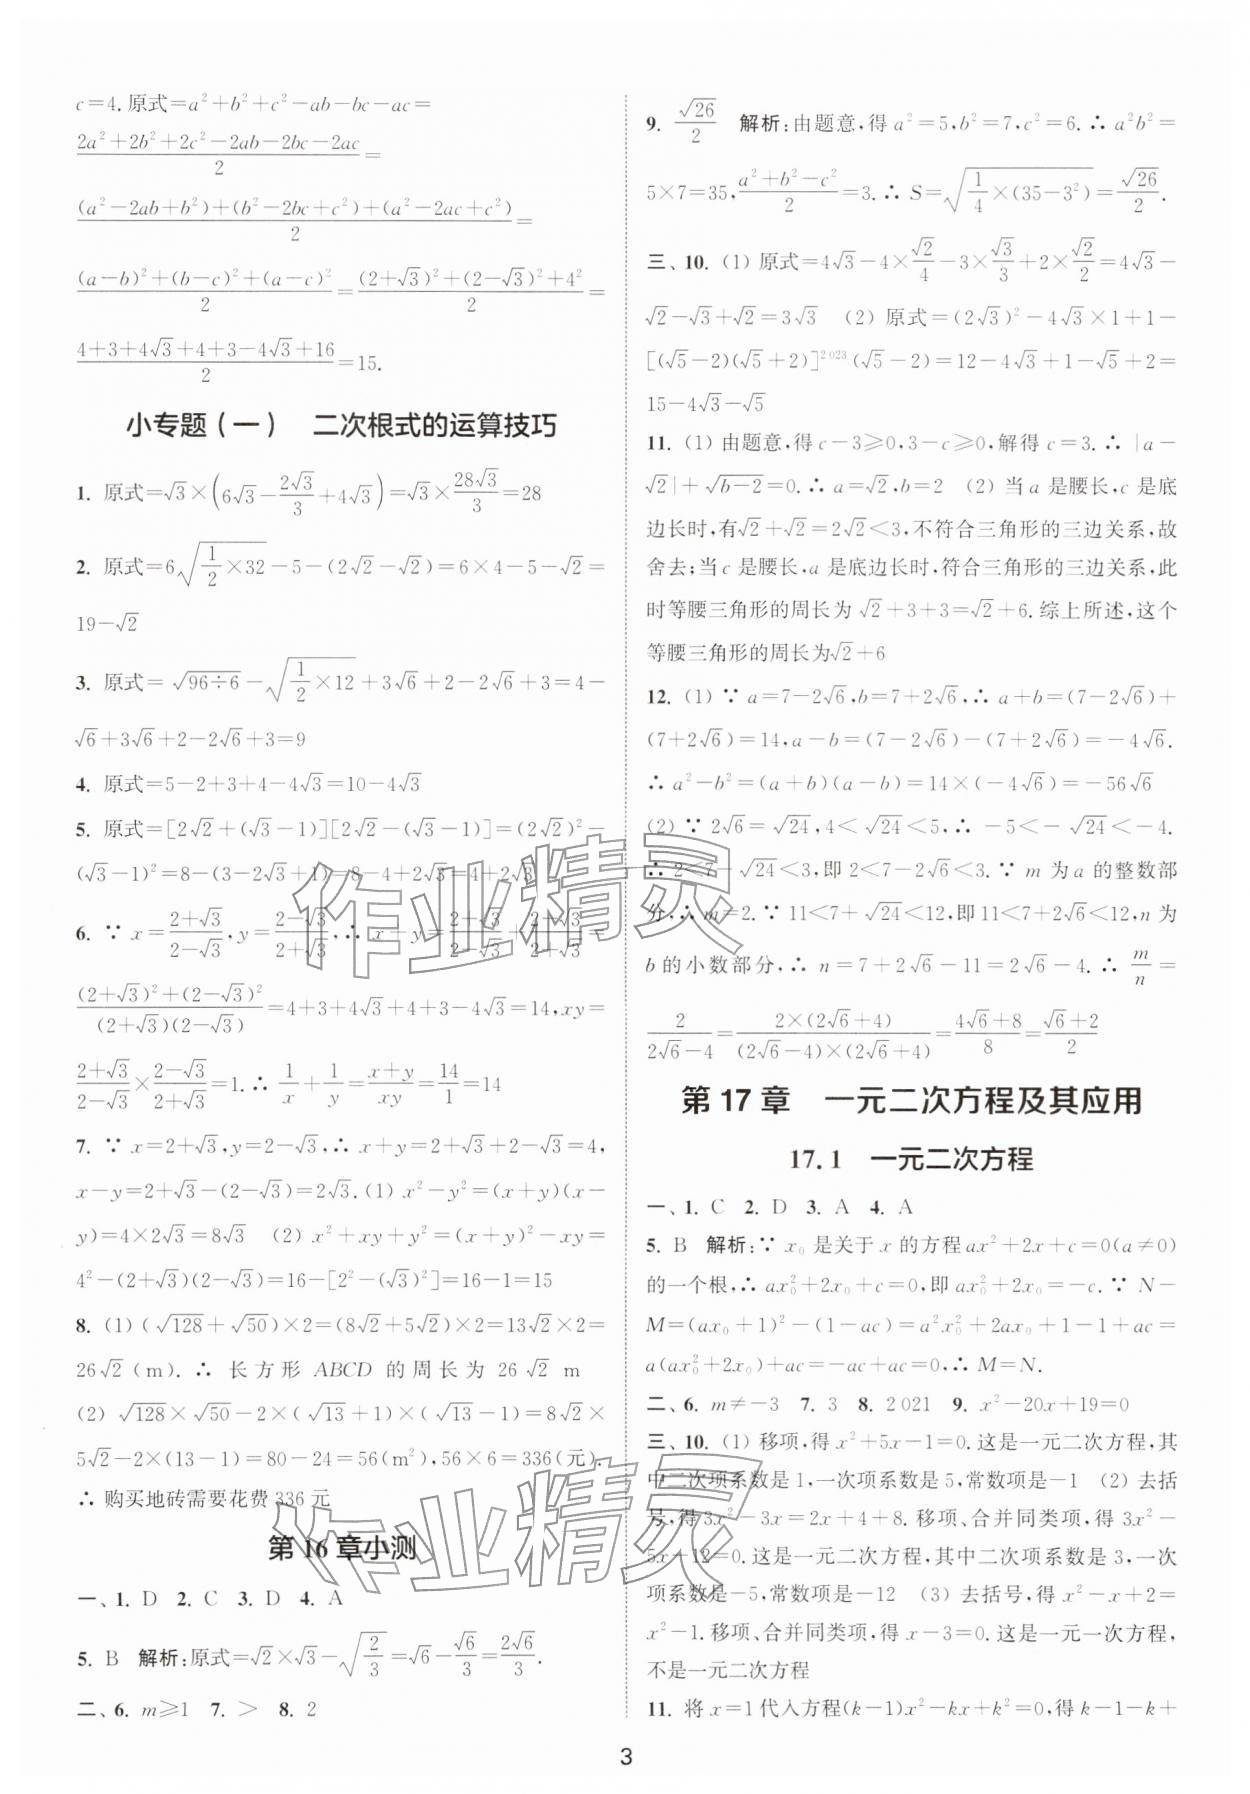 c=4.原式=a²+b²+c²-ab-bc-ac=
(2a²+2b²+2c²-2ab-2bc-2ac)/2=
((a²-2ab+b²)+(b²-2bc+c²)+(a²-2ac+c²))/2=
((a-b)²+(b-c)²+(a-c)²)/2=((2+√3)²+(2-√3)²+4²)/2=
(4+3+4√3+4+3-4√3+16)/2=15.
小专题(一) 二次根式的运算技巧
1. 原式=√3×(6√3-2√3/3+4√3)=√3×28√3/3=28
2. 原式=6√(1/2×32)-5-(2√2-√2)=6×4-5-√2=
19-√2
3. 原式=√(96÷6)-√(1/2×12)+3√6+2-2√6+3=4-
√6+3√6+2-2√6+3=9
4. 原式=5-2+3+4-4√3=10-4√3
5. 原式=[2√2+(√3-1)][2√2-(√3-1)]=(2√2)²-
(√3-1)²=8-(3-2√3+1)=8-4+2√3=4+2√3
6. ∵ x=(2+√3)/(2-√3),y=(2-√3)/(2+√3),∴ x+y=(2+√3)/(2-√3)+(2-√3)/(2+√3)=
((2+√3)²+(2-√3)²)/((2+√3)(2-√3))=4+3+4√3+4+3-4√3=14,xy=
(2+√3)/(2-√3)×(2-√3)/(2+√3)=1.∴ 1/x+1/y=(x+y)/xy=14/1=14
7. ∵ x=2+√3,y=2-√3,∴ x+y=2+√3+2-√3=4,
x-y=2+√3-(2-√3)=2√3.(1) x²-y²=(x+y)(x-
y)=4×2√3=8√3 (2) x²+xy+y²=(x+y)²-xy=
4²-(2+√3)(2-√3)=16-[2²-(√3)²]=16-1=15
8. (1) (√128+√50)×2=(8√2+5√2)×2=13√2×2=
26√2(m).∴ 长方形 ABCD 的周长为 26√2 m
(2) √128×√50-2×(√13+1)×(√13-1)=8√2×
5√2-2×(13-1)=80-24=56(m²),56×6=336(元).
∴ 购买地砖需要花费 336 元
第16章小测
一、1. D 2. C 3. D 4. A
5. B 解析:原式=√2×√3-√(2/3)=√6-√6/3=2√6/3.
二、6. m≥1 7. > 8. 2
9. √26/2 解析:由题意,得 a²=5,b²=7,c²=6.∴ a²b²=
5×7=35,(a²+b²-c²)/2=3.∴ S=√(1/4×(35-3²))=√26/2.
三、10. (1) 原式=4√3-4×√2/4-3×√3/3+2×√2/2=4√3-
√2-√3+√2=3√3 (2) 原式=(2√3)²-4√3×1+1-
[(√5-2)(√5+2)]²⁰²³(√5-2)=12-4√3+1-√5+2=
15-4√3-√5
11. (1) 由题意,得 c-3≥0,3-c≥0,解得 c=3.∴ |a-
√2|+√(b-2)=0.∴ a=√2,b=2 (2) 当 a 是腰长,c 是底
边长时,有√2+√2=2√2<3,不符合三角形的三边关系,故
舍去;当 c 是腰长,a 是底边长时,符合三角形的三边关系,此
时等腰三角形的周长为 √2+3+3=√2+6.综上所述,这个
等腰三角形的周长为√2+6
12. (1) ∵ a=7-2√6,b=7+2√6,∴ a+b=(7-2√6)+
(7+2√6)=14,a-b=(7-2√6)-(7+2√6)=-4√6.
∴ a²-b²=(a+b)(a-b)=14×(-4√6)=-56√6
(2) ∵ 2√6=√24,4<√24<5,∴ -5<-√24<-4.
∴ 2<7-√24<3,即 2<7-2√6<3.∵ m 为a 的整数部
分,∴ m=2.∵ 11<7+√24<12,即11<7+2√6<12,n 为
b 的小数部分,∴ n=7+2√6-11=2√6-4.∴ m/n=
2/(2√6-4)=(2×(2√6+4))/((2√6-4)×(2√6+4))=(4√6+8)/8=(√6+2)/2
第17章 一元二次方程及其应用
17.1 一元二次方程
一、1. C 2. D 3. A 4. A
5. B 解析:∵ x₀ 是关于 x 的方程ax²+2x+c=0(a≠0)
的一个根,∴ ax₀²+2x₀+c=0,即 ax₀²+2x₀=-c.∵ N-
M=(ax₀+1)²-(1-ac)=a²x₀²+2ax₀+1-1+ac=
a(ax₀²+2x₀)+ac=-ac+ac=0,∴ M=N.
二、6. m≠-3 7. 3 8. 2021 9. x²-20x+19=0
三、10. (1) 移项,得 x²+5x-1=0.这是一元二次方程,其
中二次项系数是 1,一次项系数是 5,常数项是-1 (2) 去括
号,得 3x²-3x=2x+4+8.移项、合并同类项,得 3x²-
5x-12=0.这是一元二次方程,其中二次项系数是 3,一次
项系数是-5,常数项是-12 (3) 去括号,得 x²-x+2=
x²-1.移项、合并同类项,得 x-3=0.这是一元一次方程,
不是一元二次方程
11. 将 x=1代入方程(k-1)x²-kx+k²=0,得 k-1-k+
3
作业精灵
作业精灵